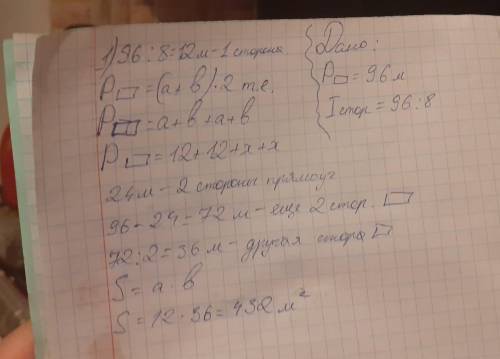 1) 96 : 8 = 12 м - 1 сторона
P▭ = (a + b) · 2 т.е.
P▭ = a + b + a + b
P▭ = 12 + 12 + x + x
24 м - 2 стороны прямоуг
96 - 24 = 72 м - еще 2 стор. ▭
72 : 2 = 36 м - другая стора ▭
S = a · b
S = 12 · 36 = 432 м²
Дано:
P▭ = 96 м
I стор = 96 : 8